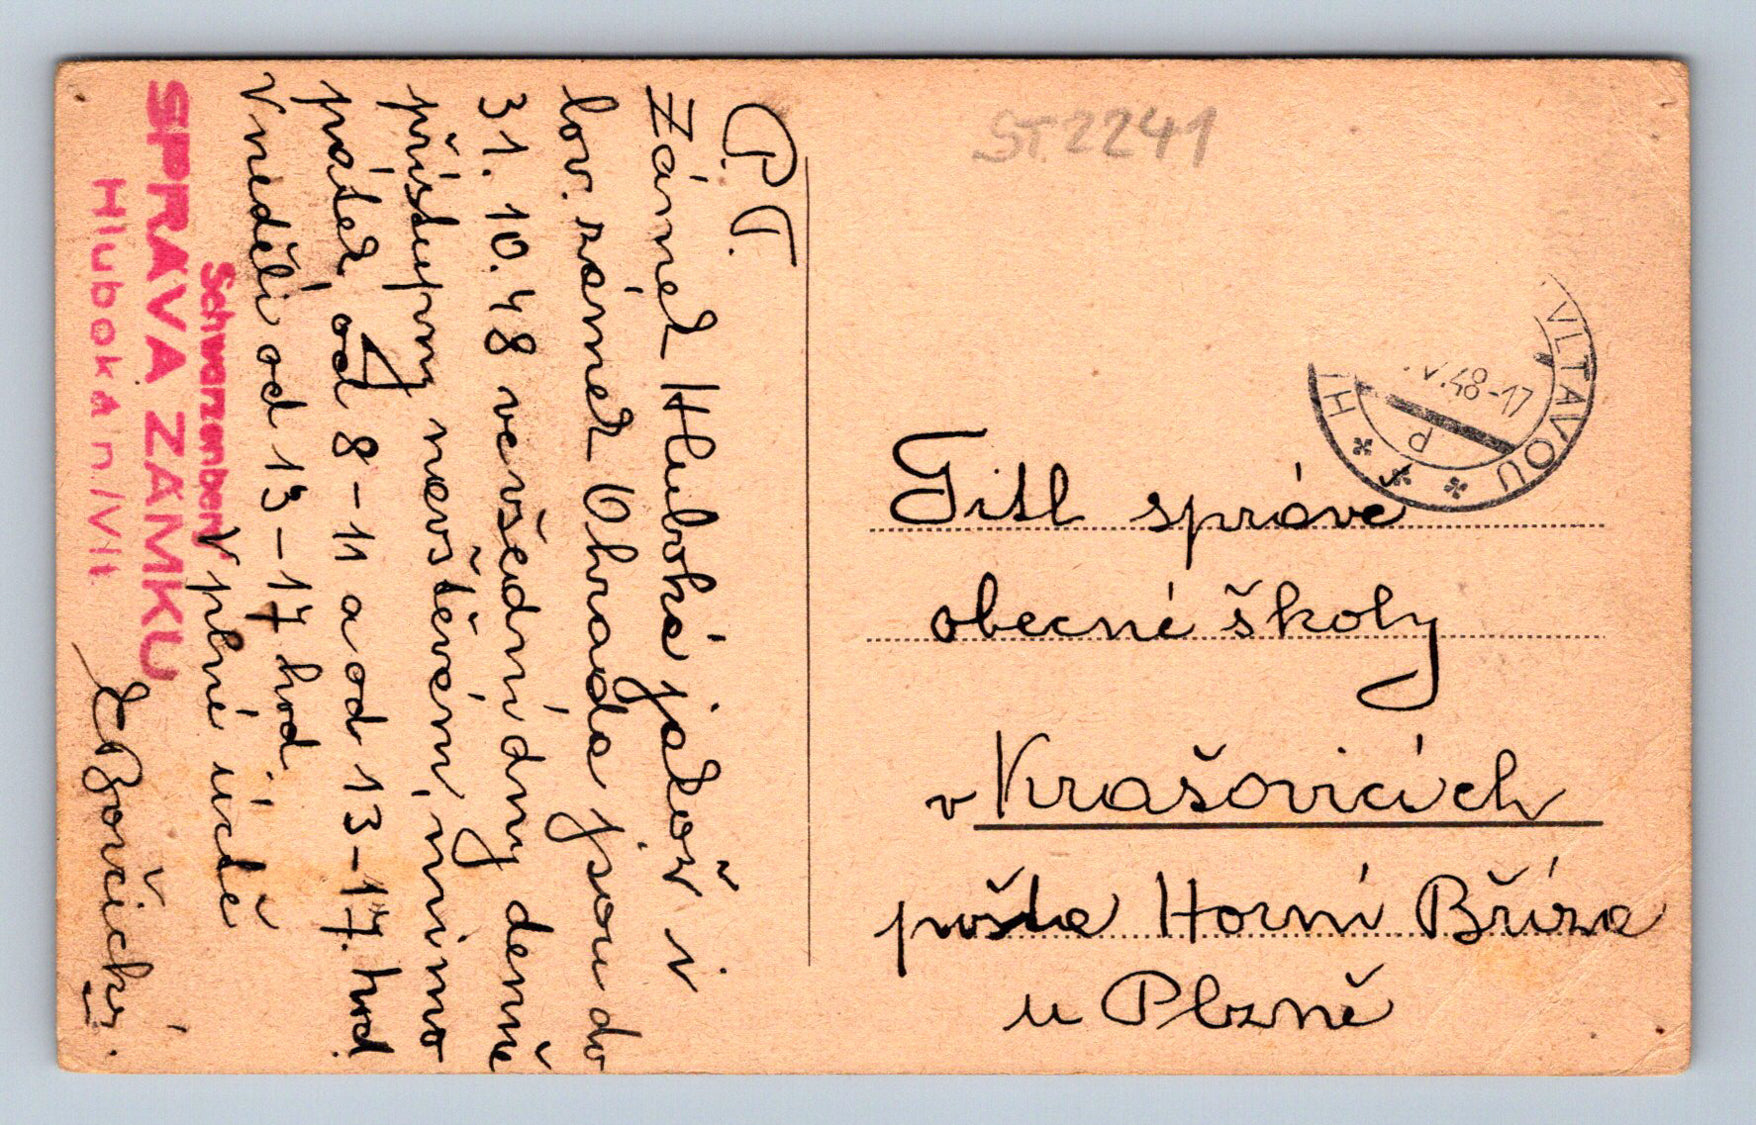 P.T.
Zámek Hluboká jakož i
lov. zámek Ohrada jsou do
31. 10. 48 ve všední dny denně
přístupny navštěvám, mimo
pátek od 8-11 a od 13-17. hod
V neděli od 13-17 hod.
V plné úctě
Schwarzenberg.
SPRAVA ZÁMKU
Hluboká n./Vlt.
ST 2241
VLTAVOU
.V.48-17
P
H
Titl správě
obecné školy
v Krašovicích
pošta Horní Bříza
u Plzně